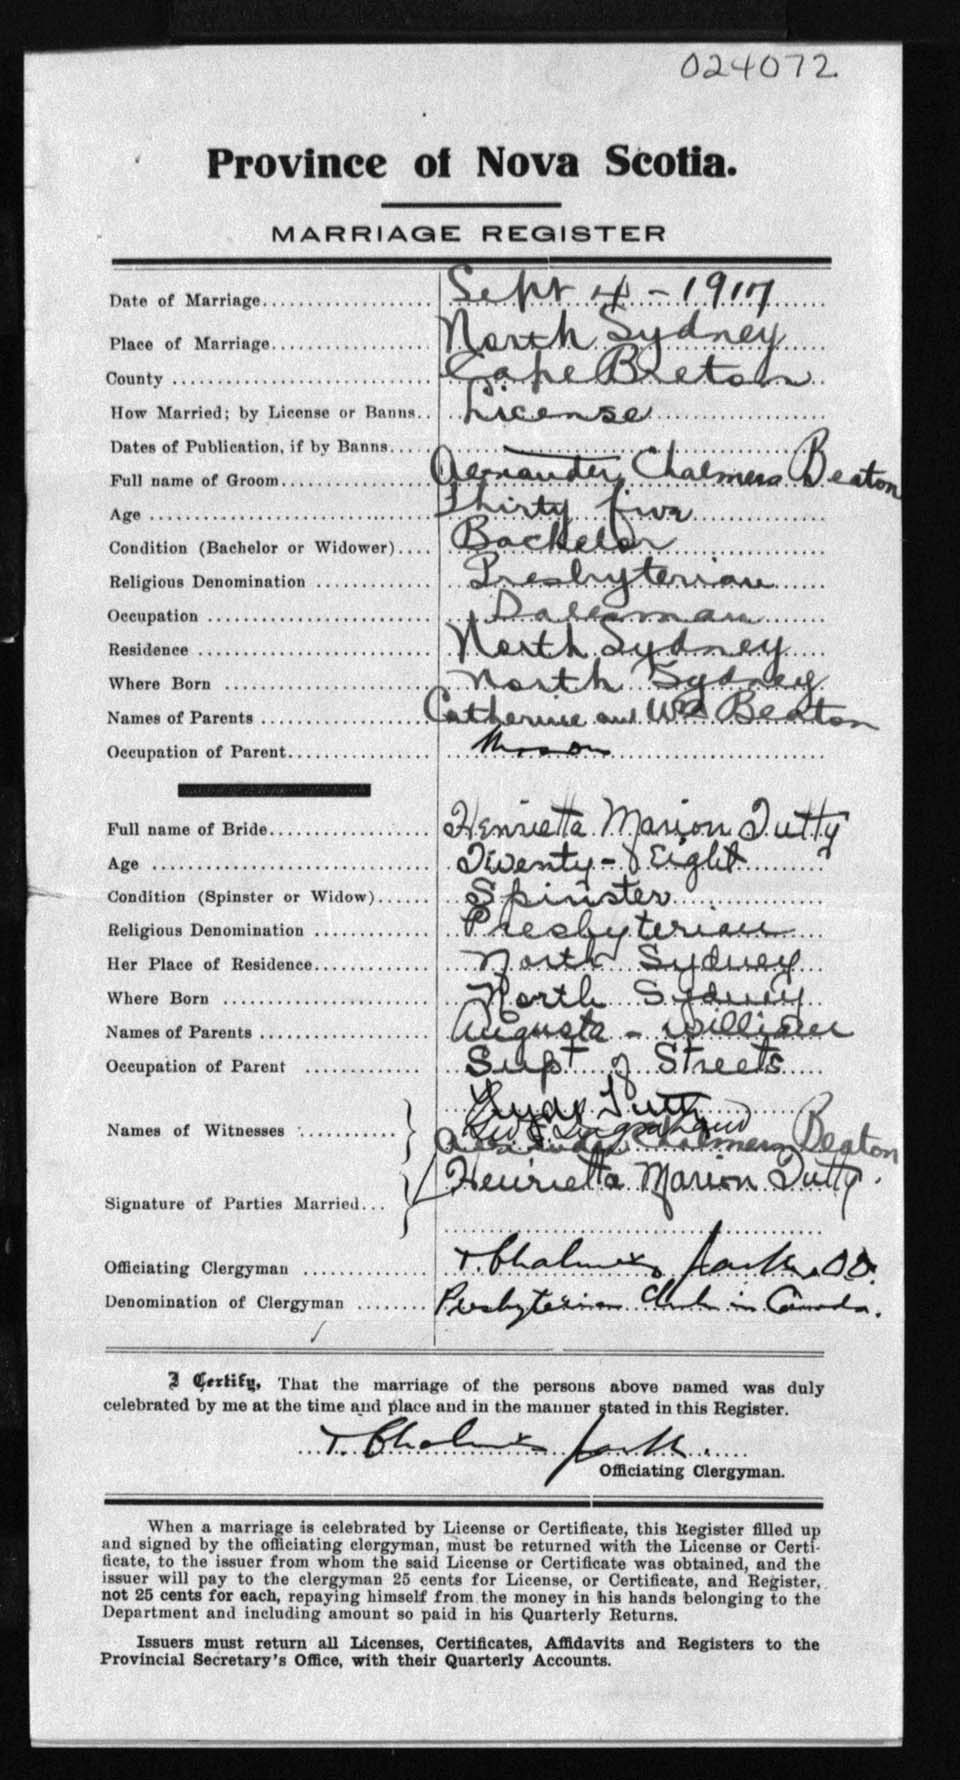 024072
Province of Nova Scotia.
MARRIAGE REGISTER
Date of Marriage.................... Sept 4 - 1917
Place of Marriage................... North Sydney
County .............................. Cape Breton
How Married; by License or Banns.. License
Dates of Publication, if by Banns....
Full name of Groom................ Alexander Chalmers Beaton
Age ................................ Thirty five
Condition (Bachelor or Widower).... Bachelor
Religious Denomination ............. Presbyterian
Occupation .........................
Residence .......................... North Sydney
Where Born ........................ North Sydney
Names of Parents .................. Catherine and Wm Beaton
Occupation of Parent............... Mason
Full name of Bride.................. Henrietta Marion Tutty
Age ................................ Twenty-Eight
Condition (Spinster or Widow)...... Spinster
Religious Denomination ............. Presbyterian
Her Place of Residence............. North Sydney
Where Born ........................ North Sydney
Names of Parents .................. Augusta - William
Occupation of Parent ............. Supt of Streets
Tutty
Names of Witnesses ...........
Alexander Chalmers Beaton
Henrietta Marion Tutty.
Signature of Parties Married...
Officiating Clergyman .............. T. Chalmers Jack. DD.
Denomination of Clergyman ........ Presbyterian Church in Canada.
I Certify, That the marriage of the persons above named was duly
celebrated by me at the time and place and in the manner stated in this Register.
T. Chalmers Jack.
Officiating Clergyman.
When a marriage is celebrated by License or Certificate, this Register filled up
and signed by the officiating clergyman, must be returned with the License or Certi-
ficate, to the issuer from whom the said License or Certificate was obtained, and the
issuer will pay to the clergyman 25 cents for License, or Certificate, and Register,
not 25 cents for each, repaying himself from the money in his hands belonging to the
Department and including amount so paid in his Quarterly Returns.
Issuers must return all Licenses, Certificates, Affidavits and Registers to the
Provincial Secretary's Office, with their Quarterly Accounts.